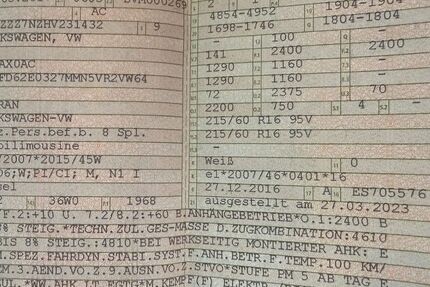 AC
4854-4952
1904-1904
ZZZ7NZHV231432 9
1698-1746
1804-1804
KSWAGEN, VW
100
141
2400
2400
AX0AC
1290
1160
FD62E0327MMN5VR2VW64
1290
1160
72
2375
70
RAN
2200
750
4
-
KSWAGEN-VW
215/60 R16 95V
z.Pers.bef.b. 8 Spl.
215/60 R16 95V
bilimousine
-
/2007*2015/45W
Weiß
0
06;W;PI/CI; M, N1 I
e1*2007/46*0401*16
sel
27.12.2016
A
ES705576
2 36W0 1968
ausgestellt am 27.03.2023
F.2:+10 U. 7.2/8.2:+60 B.ANHÄNGEBETRIEB*O.1:2400 B
% STEIG.*TECHN.ZUL.GES-MASSE D.ZUGKOMBINATION:4610
BIS 8% STEIG.:4810*BEI WERKSEITIG MONTIERTER AHK: E
M.SPEZ.FAHRDYN.STABI.SYST.F.ANH.BETR.F.TEMP.100 KM/
EM.3.AEND.VO.Z.9.AUSN.VO.Z.STVO*STUFE PM 5 AB TAG E